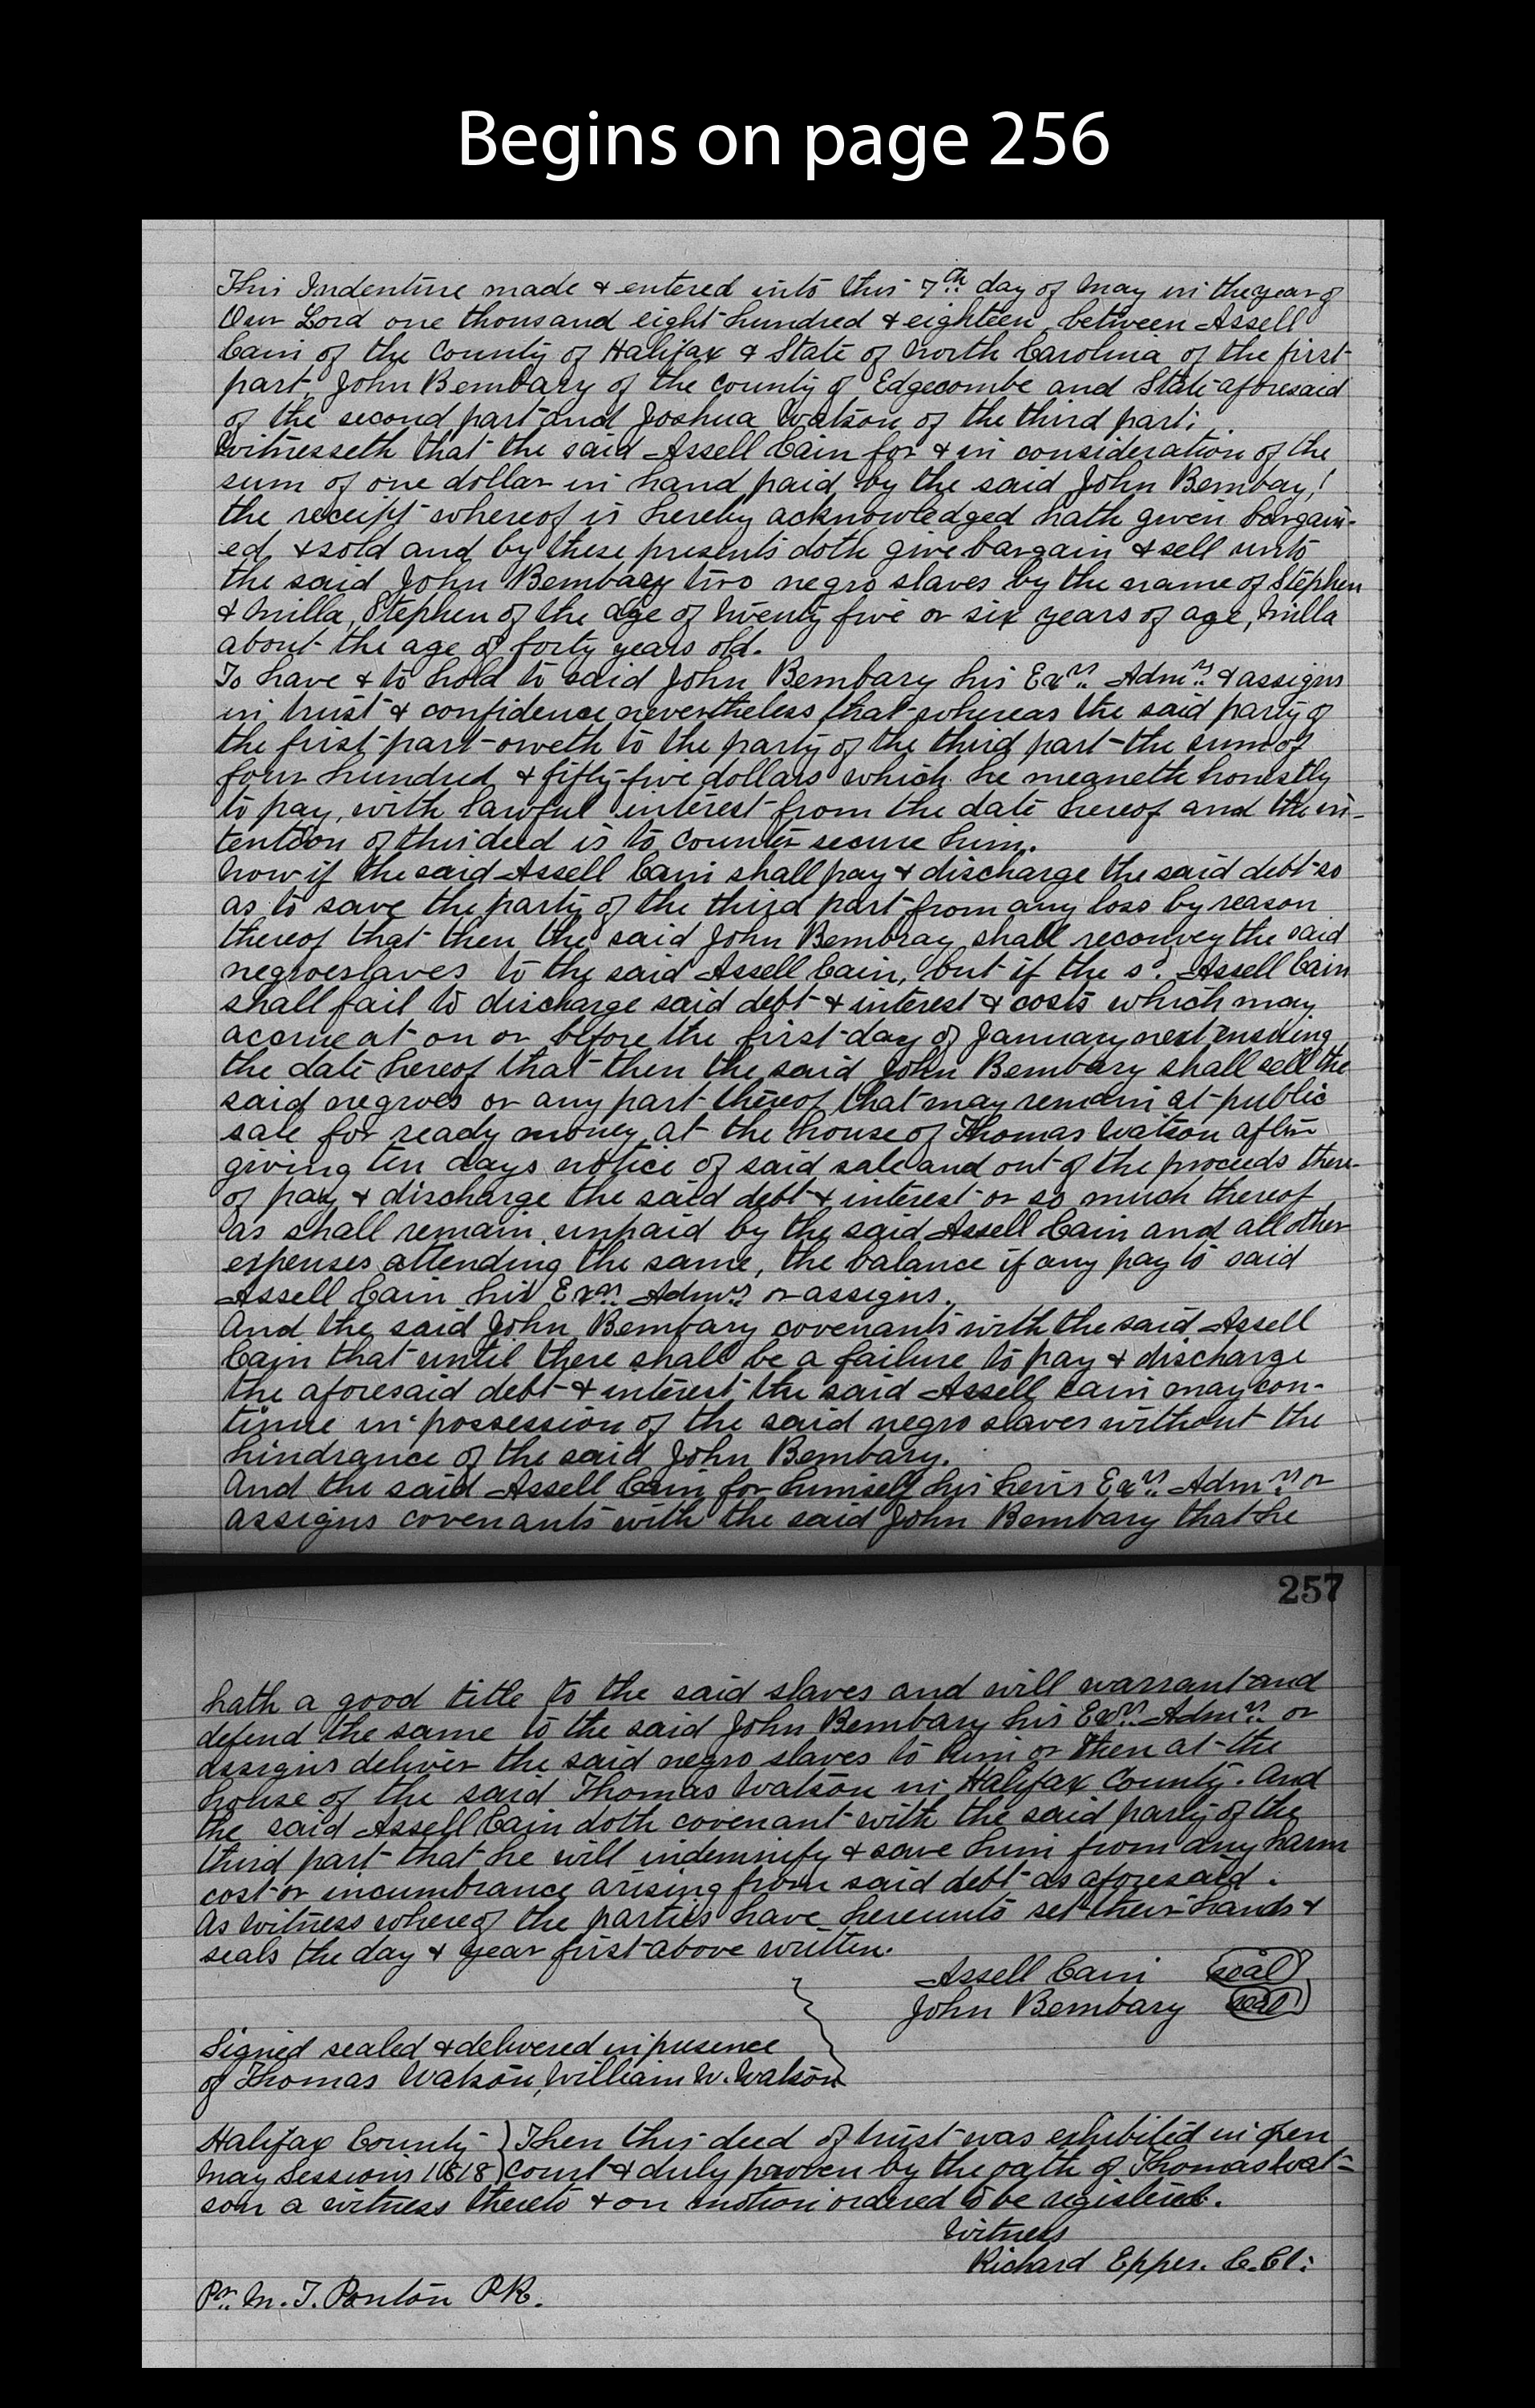 Begins on page 256
This Indenture made & entered into this 7th day of May in the year of
Our Lord one thousand eight hundred & eighteen, between Assell
Cain of the County of Halifax & State of North Carolina of the first
part, John Bembary of the county of Edgecombe and State aforesaid
of the second part and Joshua Watson of the third part;
Witnesseth that the said Assell Cain for & in consideration of the
sum of one dollar in hand paid by the said John Bembay,
the receipt whereof is hereby acknowledged hath given bargain-
ed, & sold and by these presents doth give bargain & sell unto
the said John Bembary two negro slaves by the name of Stephen
& Milla, Stephen of the age of twenty five or six years of age, Milla
about the age of forty years old.
To have & to hold to said John Bembary his Exrs. Admrs. & assigns
in trust & confidence nevertheless that whereas the said party of
the first part oweth to the party of the third part the sum of
four hundred & fifty five dollars which he meaneth honestly
to pay, with lawful interest from the date hereof and the in-
tention of this deed is to counter secure him.
Now if the said Assell Cain shall pay & discharge the said debt so
as to save the party of the third part from any loss by reason
thereof that then the said John Bembray shall reconvey the said
negroeslaves to the said Assell Cain, but if the sd. Assell Cain
shall fail to discharge said debt & interest & costs which may
accrue at on or before the first day of January next ensuing
the date hereof that then the said John Bembary shall sell the
said negroes or any part thereof that may remain at public
sale for ready money at the house of Thomas Watson after
giving ten days notice of said sale and out of the proceeds there-
of pay & discharge the said debt & interest or so much thereof
as shall remain unpaid by the said Assell Cain and all other
expenses attending the same, the balance if any pay to said
Assell Cain his Exrs. Admrs. or assigns.
And the said John Bembary covenants with the said Assell
Cain that until there shall be a failure to pay & discharge
the aforesaid debt & interest, the said Assell Cain may con-
tinue in possession of the said negro slaves without the
hindrance of the said John Bembary.
And the said Assell Cain for himself his heirs Exrs. Admrs. or
assigns covenants with the said John Bembary that he
257
hath a good title to the said slaves and will warrant and
defend the same to the said John Bembary his Exrs. Admrs. or
assigns deliver the said negro slaves to him or then at the
house of the said Thomas Watson in Halifax County. And
the said Assell Cain doth covenant with the said party of the
third part that he will indemnify & save him from any harm
cost or incumbrance arising from said debt as aforesaid.
As witness whereof the parties have hereunto set their hands &
seals the day & year first above written.
Assell Cain seal
John Bembary seal
Signed sealed & delivered in presence
of Thomas Watson, William W. Watson
Halifax County ) Then this deed of trust was exhibited in open
May Sessions 1818 ) court & duly proven by the oath of Thomas Wat-
son a witness thereto & on motion ordered to be registered.
Witness
Richard Eppes. C.Cl:
Pr. M. T. Ponton P.R.